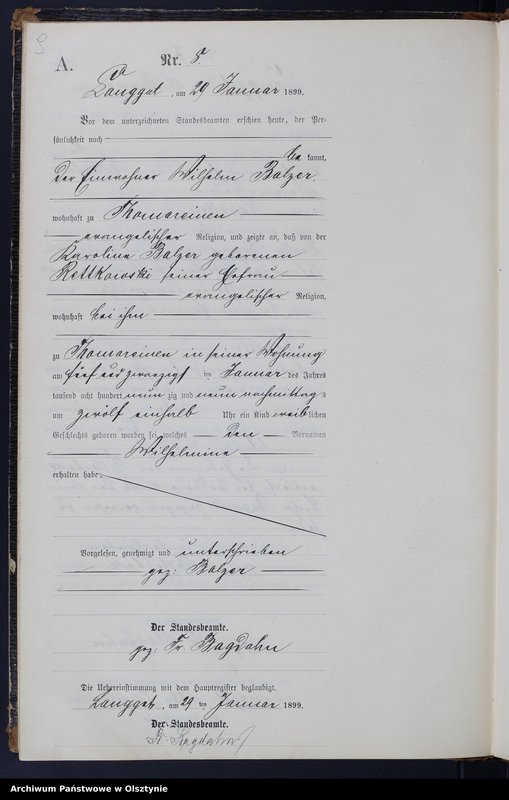 9
A. Nr. 5.
Langgut, am 29 Januar 1899.
Vor dem unterzeichneten Standesbeamten erschien heute, der Per-
sönlichkeit nach
be kannt,
der Einwohner Wilhelm Balzer.
wohnhaft zu Thomareinen
evangelischer Religion, und zeigte an, daß von der
Karoline Balzer geborenen
Rettkowski seiner Ehefrau
evangelischer Religion,
wohnhaft bei ihm
zu Thomareinen in seiner Wohnung
am fünf und zwanzigst ten Januar des Jahres
tausend acht hundert neun zig und neun nachmittags
um zwölf einhalb Uhr ein Kind weiblichen
Geschlechts geboren worden sei, welches den Vornamen
Wilhelmine
erhalten habe.
Vorgelesen, genehmigt und unterschrieben
gez: Balzer
Der Standesbeamte.
gez: Fr. Bagdahn
Die Uebereinstimmung mit dem Hauptregister beglaubigt.
Langgut, am 29 ten Januar 1899.
Der Standesbeamte.
Fr. Bagdahn
Archiwum Państwowe w Olsztynie